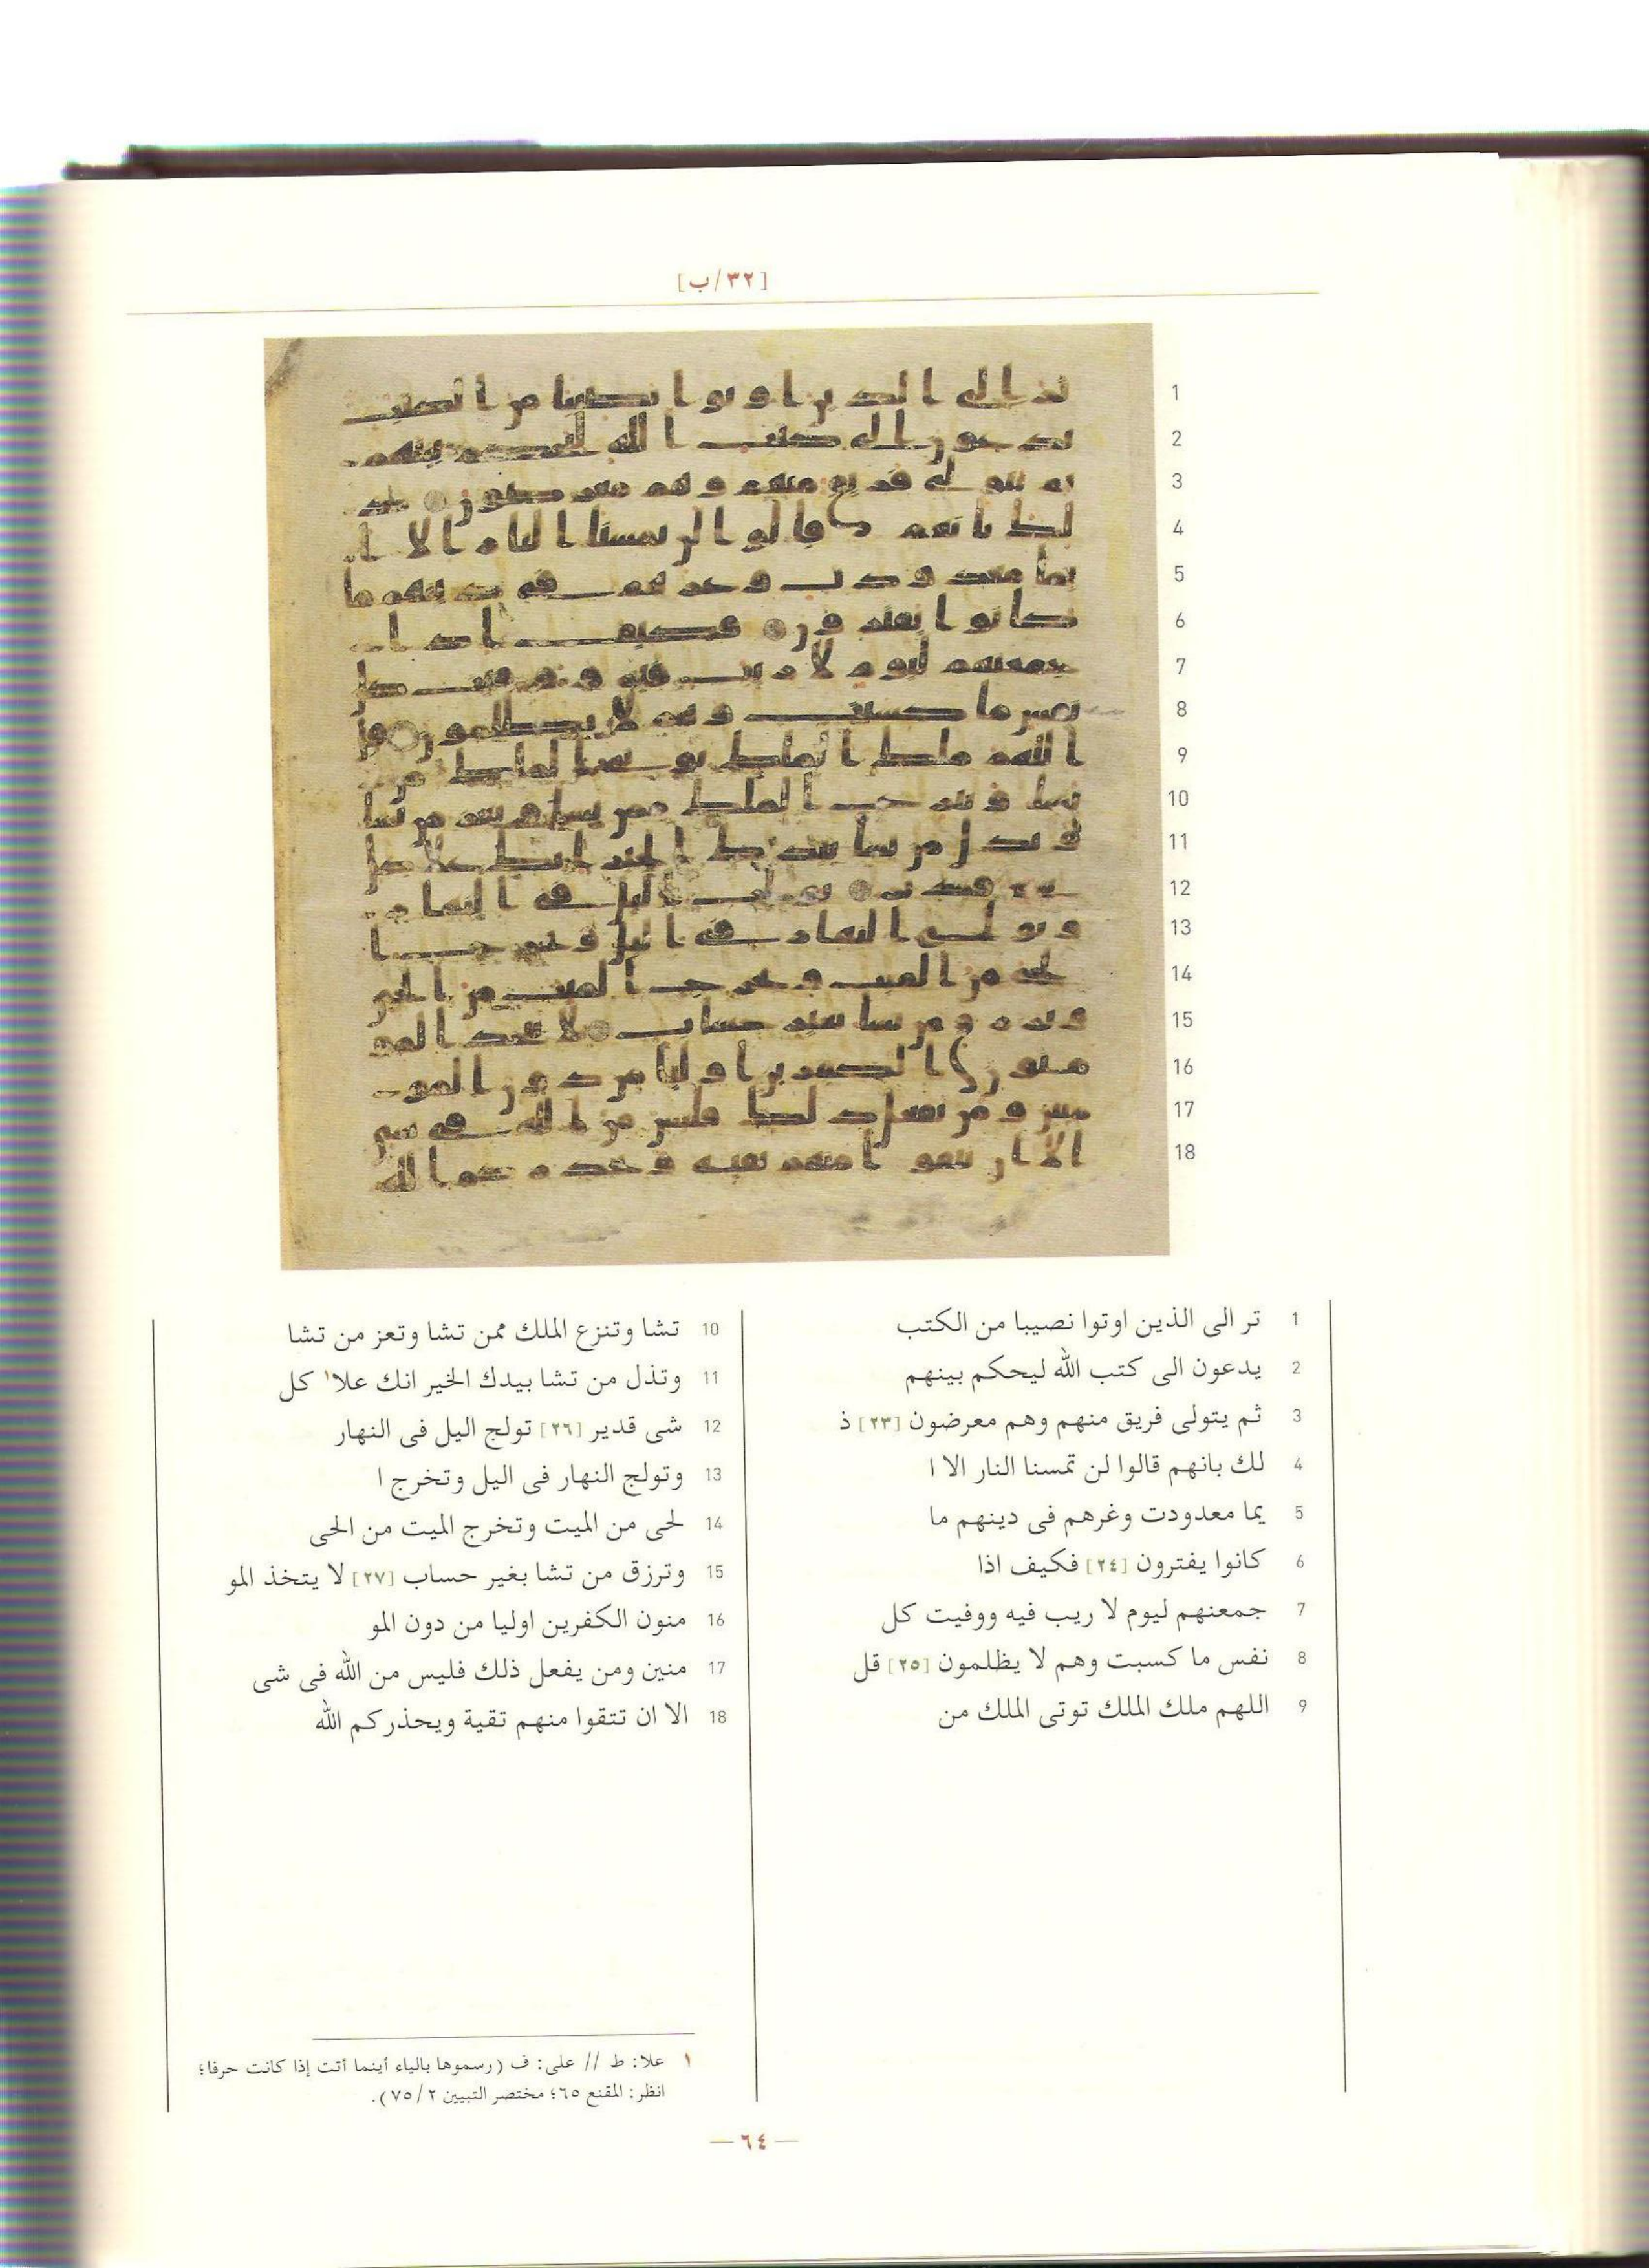 [٣٢/ب]
1
2
3
4
5
6
7
8
9
10
11
12
13
14
15
16
17
18
1 تر الى الذين اوتوا نصيبا من الكتب
2 يدعون الى كتب الله ليحكم بينهم
3 ثم يتولى فريق منهم وهم معرضون [٢٣] ذ
4 لك بانهم قالوا لن تمسنا النار الا ا
5 يما معدودت وغرهم فى دينهم ما
6 كانوا يفترون [٢٤] فكيف اذا
7 جمعنهم ليوم لا ريب فيه ووفيت كل
8 نفس ما كسبت وهم لا يظلمون [٢٥] قل
9 اللهم ملك الملك توتى الملك من
10 تشا وتنزع الملك ممن تشا وتعز من تشا
11 وتذل من تشا بيدك الخير انك علا١ كل
12 شى قدير [٢٦] تولج اليل فى النهار
13 وتولج النهار فى اليل وتخرج ا
14 لحى من الميت وتخرج الميت من الحى
15 وترزق من تشا بغير حساب [٢٧] لا يتخذ المو
16 منون الكفرين اوليا من دون المو
17 منين ومن يفعل ذلك فليس من الله فى شى
18 الا ان تتقوا منهم تقية ويحذركم الله
١ علا: ط // على: ف (رسموها بالياء أينما أتت إذا كانت حرفا؛
انظر: المقنع ٦٥؛ مختصر التبيين ٧٥/٢).
— ٦٤ —